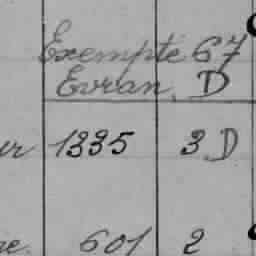 Exempté 67
Evran, D
ur 1335 3 D
re. 601 2